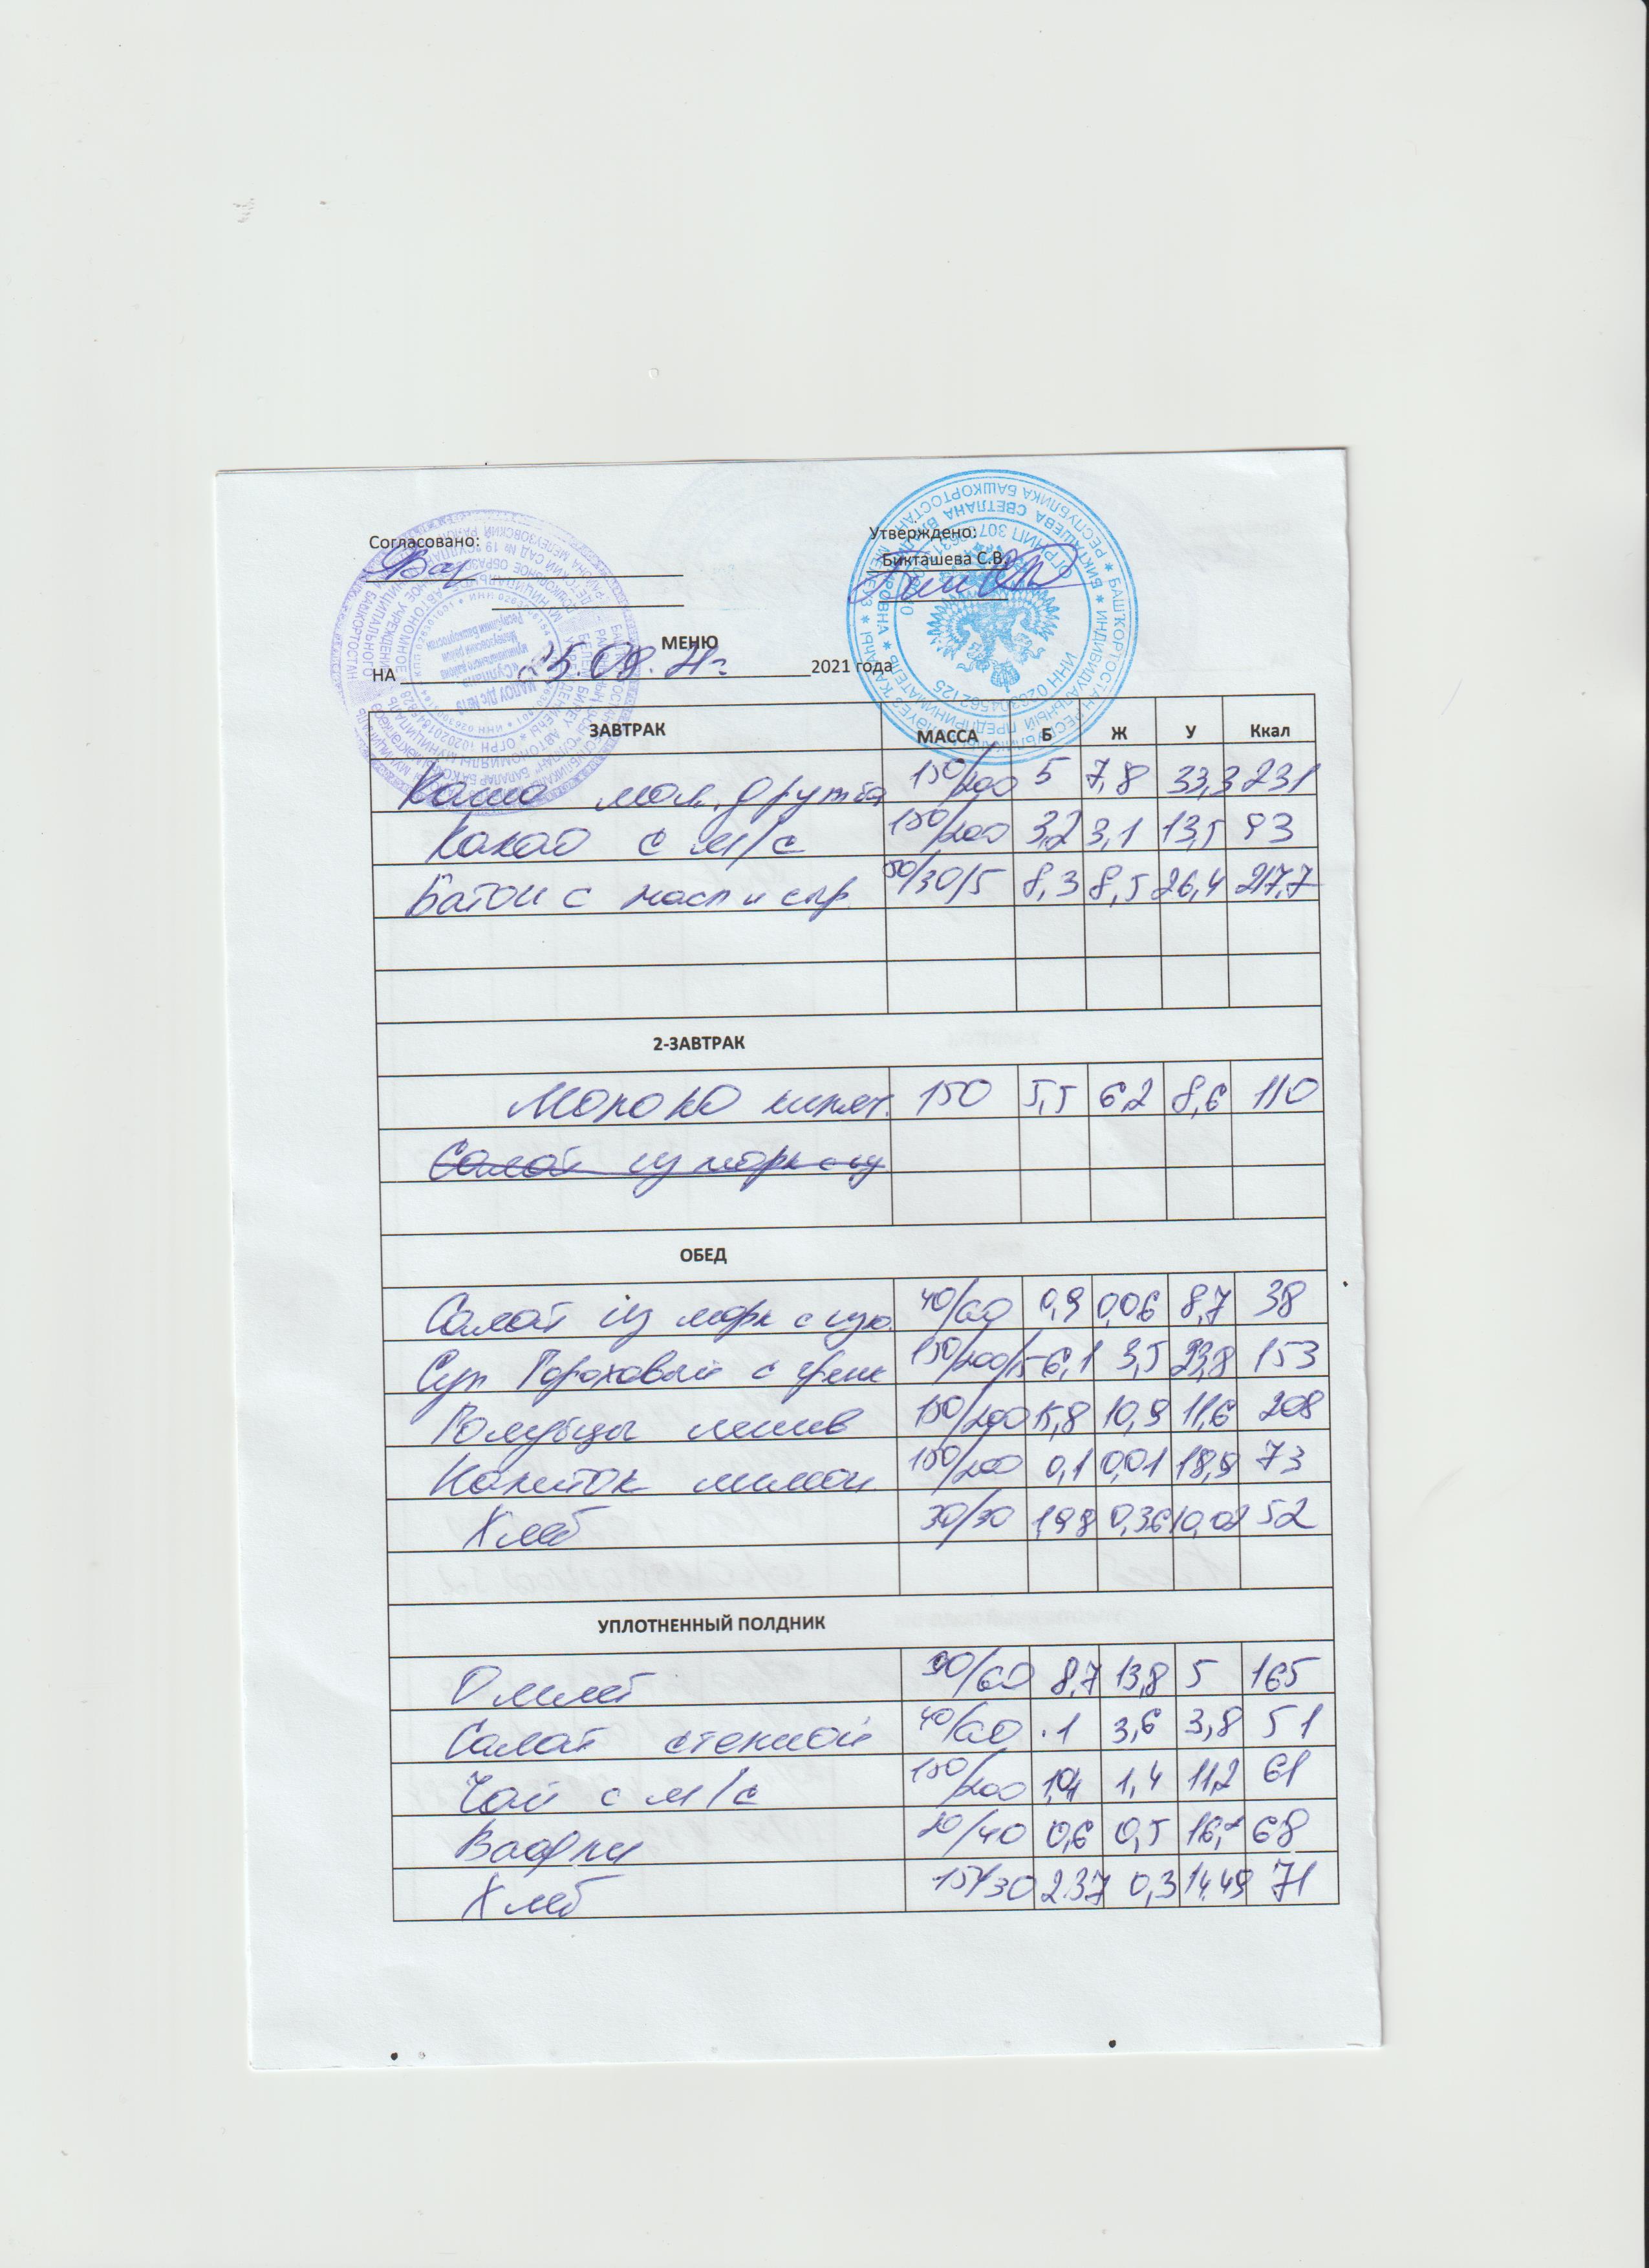 Согласовано:
Утверждено:
Бикташева С.В.
МЕНЮ
НА 25.08.21г. 2021 года
ЗАВТРАК МАССА Б Ж У Ккал
Каша мол. дружба 150/200 5 7,8 33,3 231
Какао с м/с 150/200 3,2 3,1 13,5 93
Батон с масл и сыр. 50/30/5 8,3 8,5 26,4 217,7
2-ЗАВТРАК
Молоко кипят. 150 5,5 6,2 8,6 110
Салат из морк с
ОБЕД
Салат из морк с изю. 40/60 0,9 0,06 8,7 38
Суп Гороховый с грен 150/200/15 6,1 3,5 23,8 153
Голубцы ленив 150/200 15,8 10,9 11,6 208
Напиток лимон 150/200 0,1 0,01 18,9 73
Хлеб 30/30 1,98 0,36 10,02 52
УПЛОТНЕННЫЙ ПОЛДНИК
Омлет /60 8,7 13,8 5 165
Салат степной 40/60 1 3,6 3,8 51
Чай с м/с 150/200 1,4 1,4 11,2 61
Вафли 20/40 0,6 0,5 68
Хлеб 15/30 2.37 0,3 14.49 71